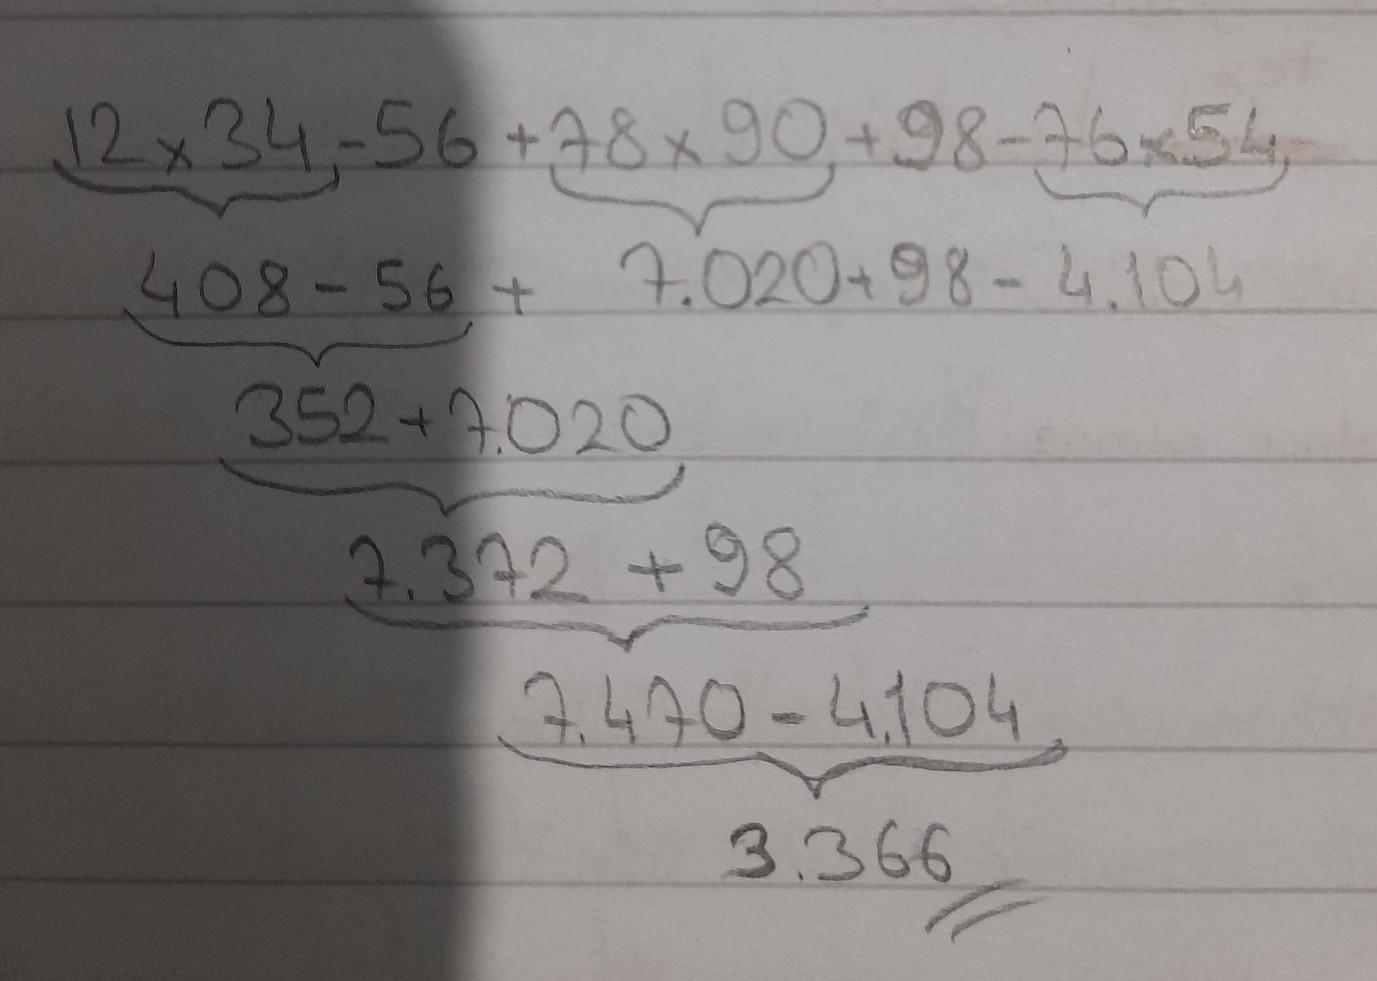 12x34-56+78x90+98-76x54
408-56+ 7.020+98-4.104
352+7.020
7.372+98
7.470-4.104
3.366